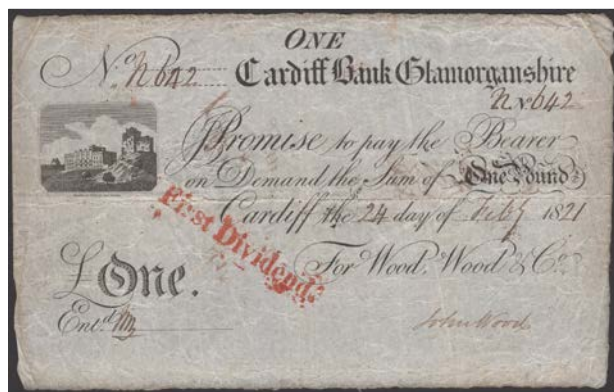 ONE
No. N642 Cardiff Bank Glamorganshire
No 642
I Promise to pay the Bearer
on Demand the Sum of One Pound
Cardiff the 24 day of Feby 1821
First Dividend.
For Wood, Wood & Co.
£One.
Entd.
John Wood